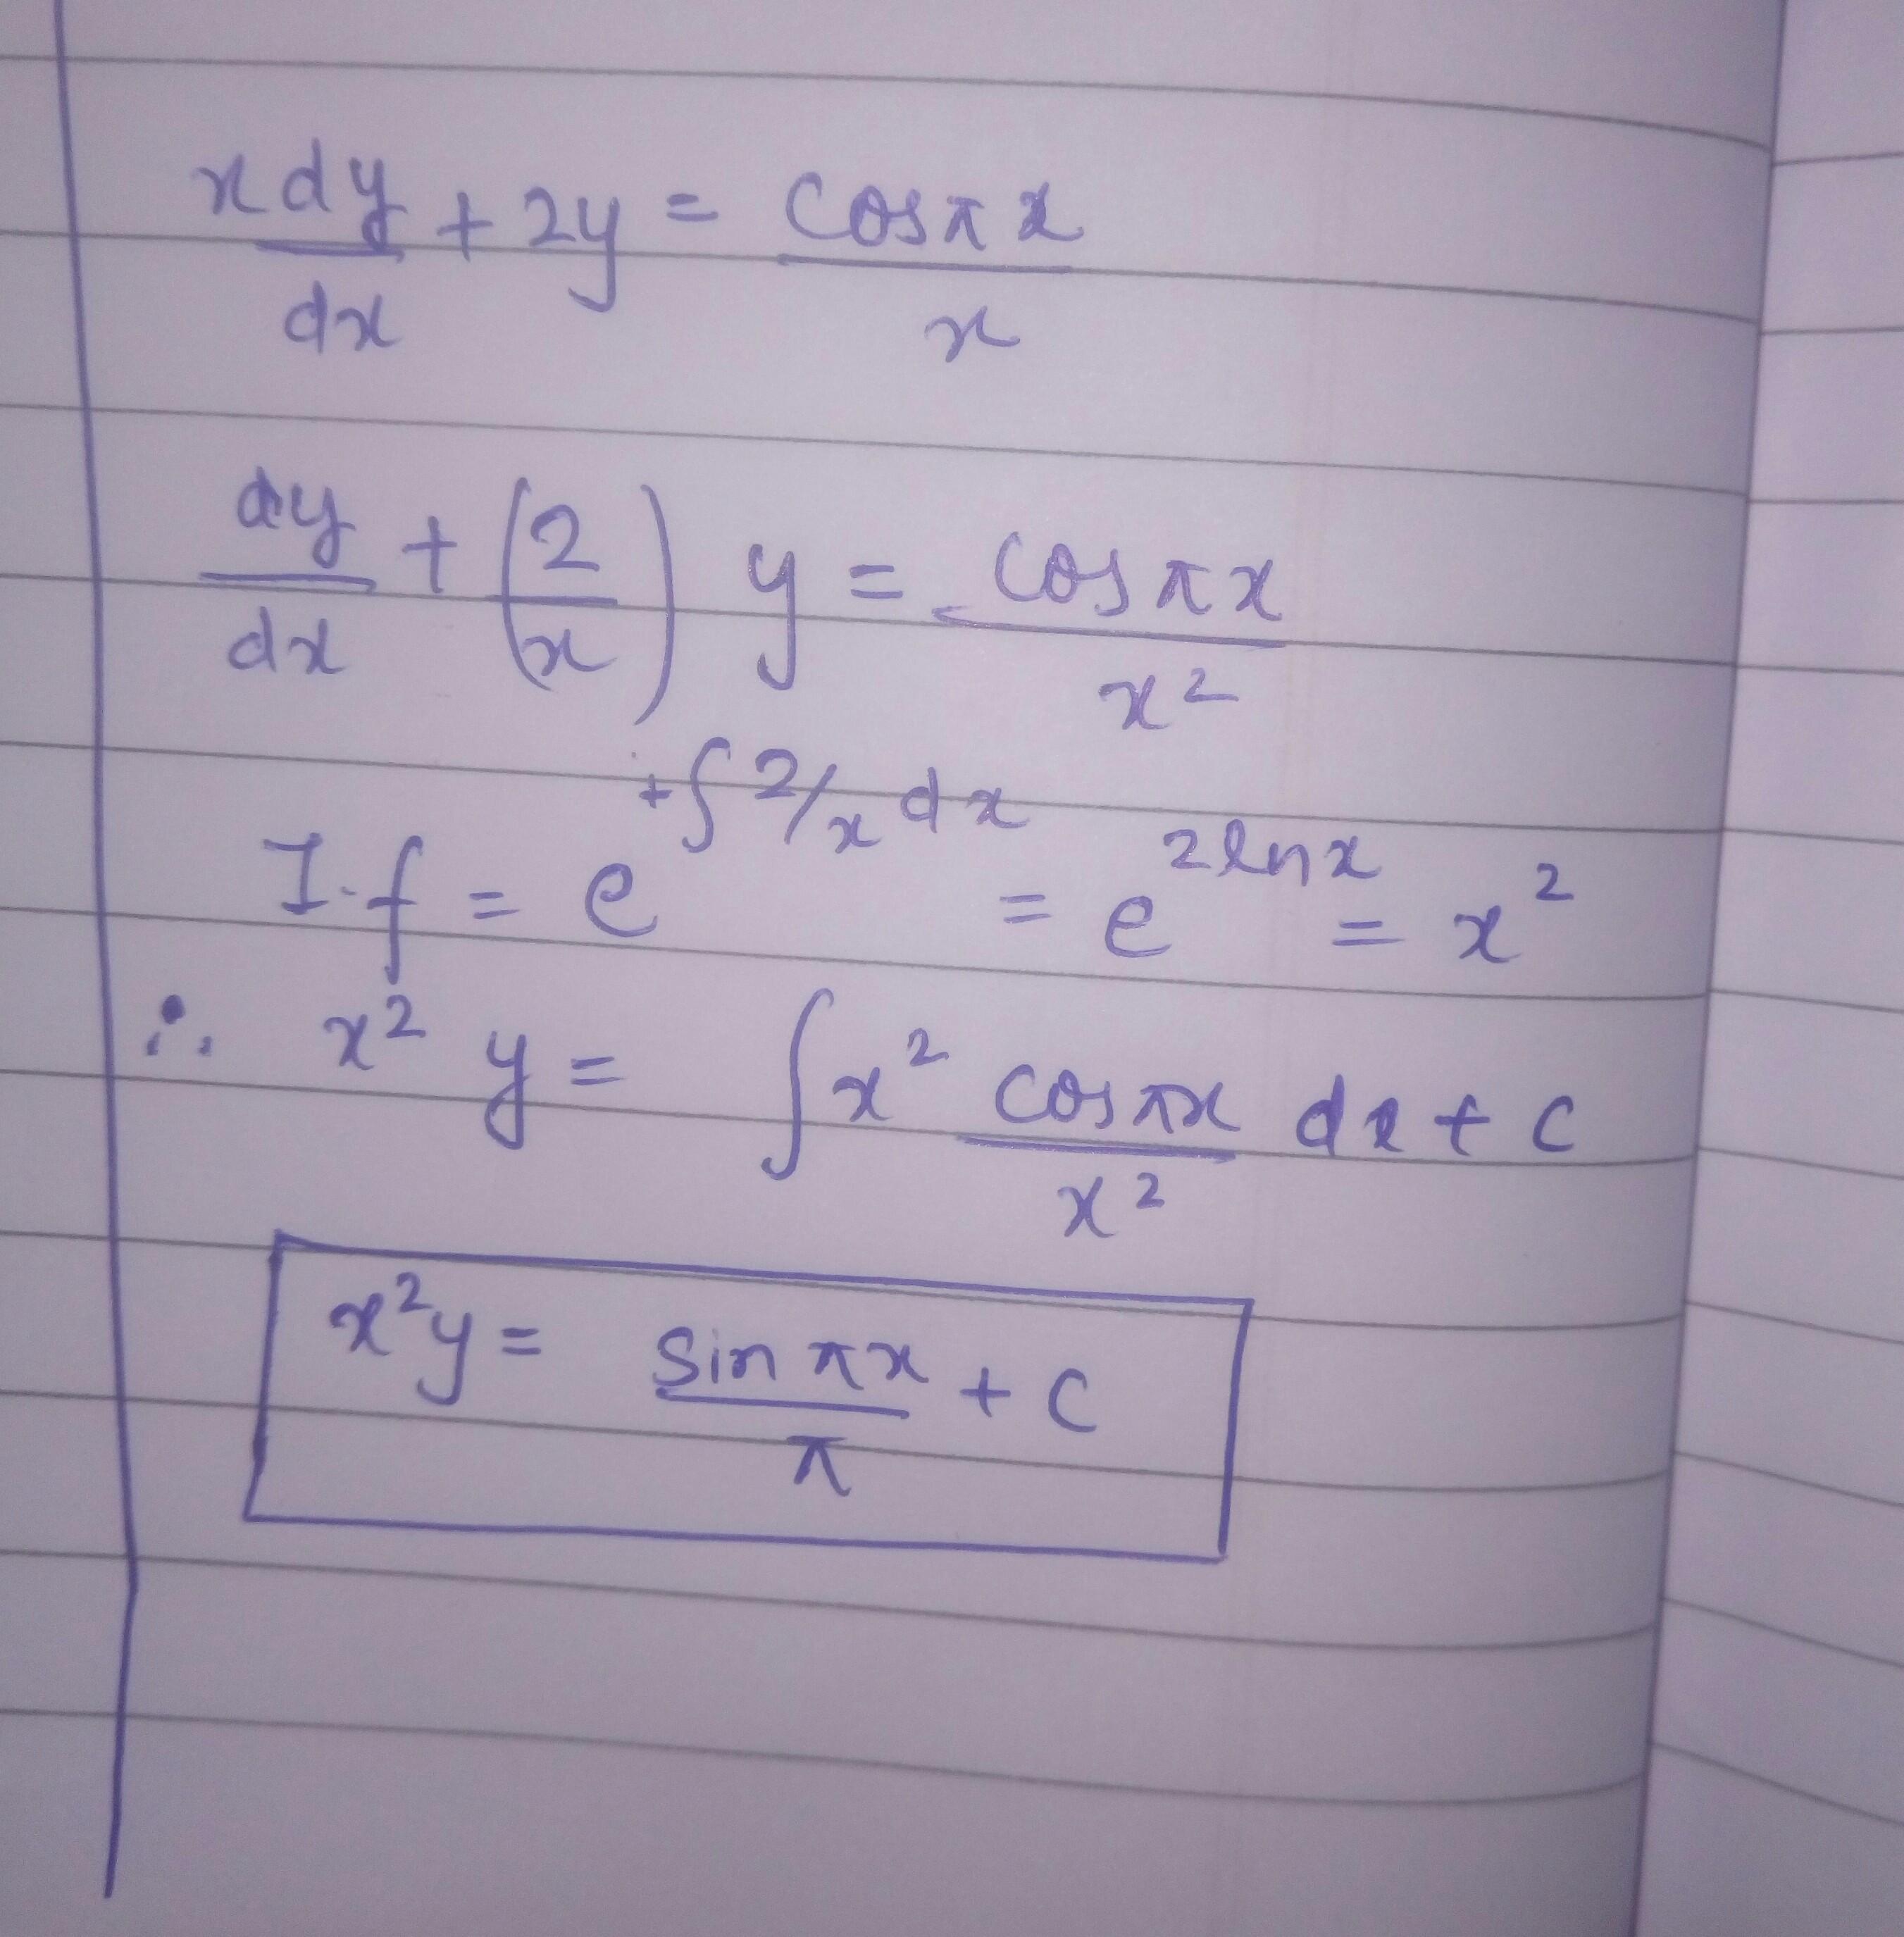 x dy/dx + 2y = cosπx/x
dy/dx + (2/x) y = cosπx/x²
I.f = e^(+∫2/x dx) = e^(2lnx) = x²
∴ x² y = ∫x² cosπx/x² dx + c
x²y = sinπx/π + c